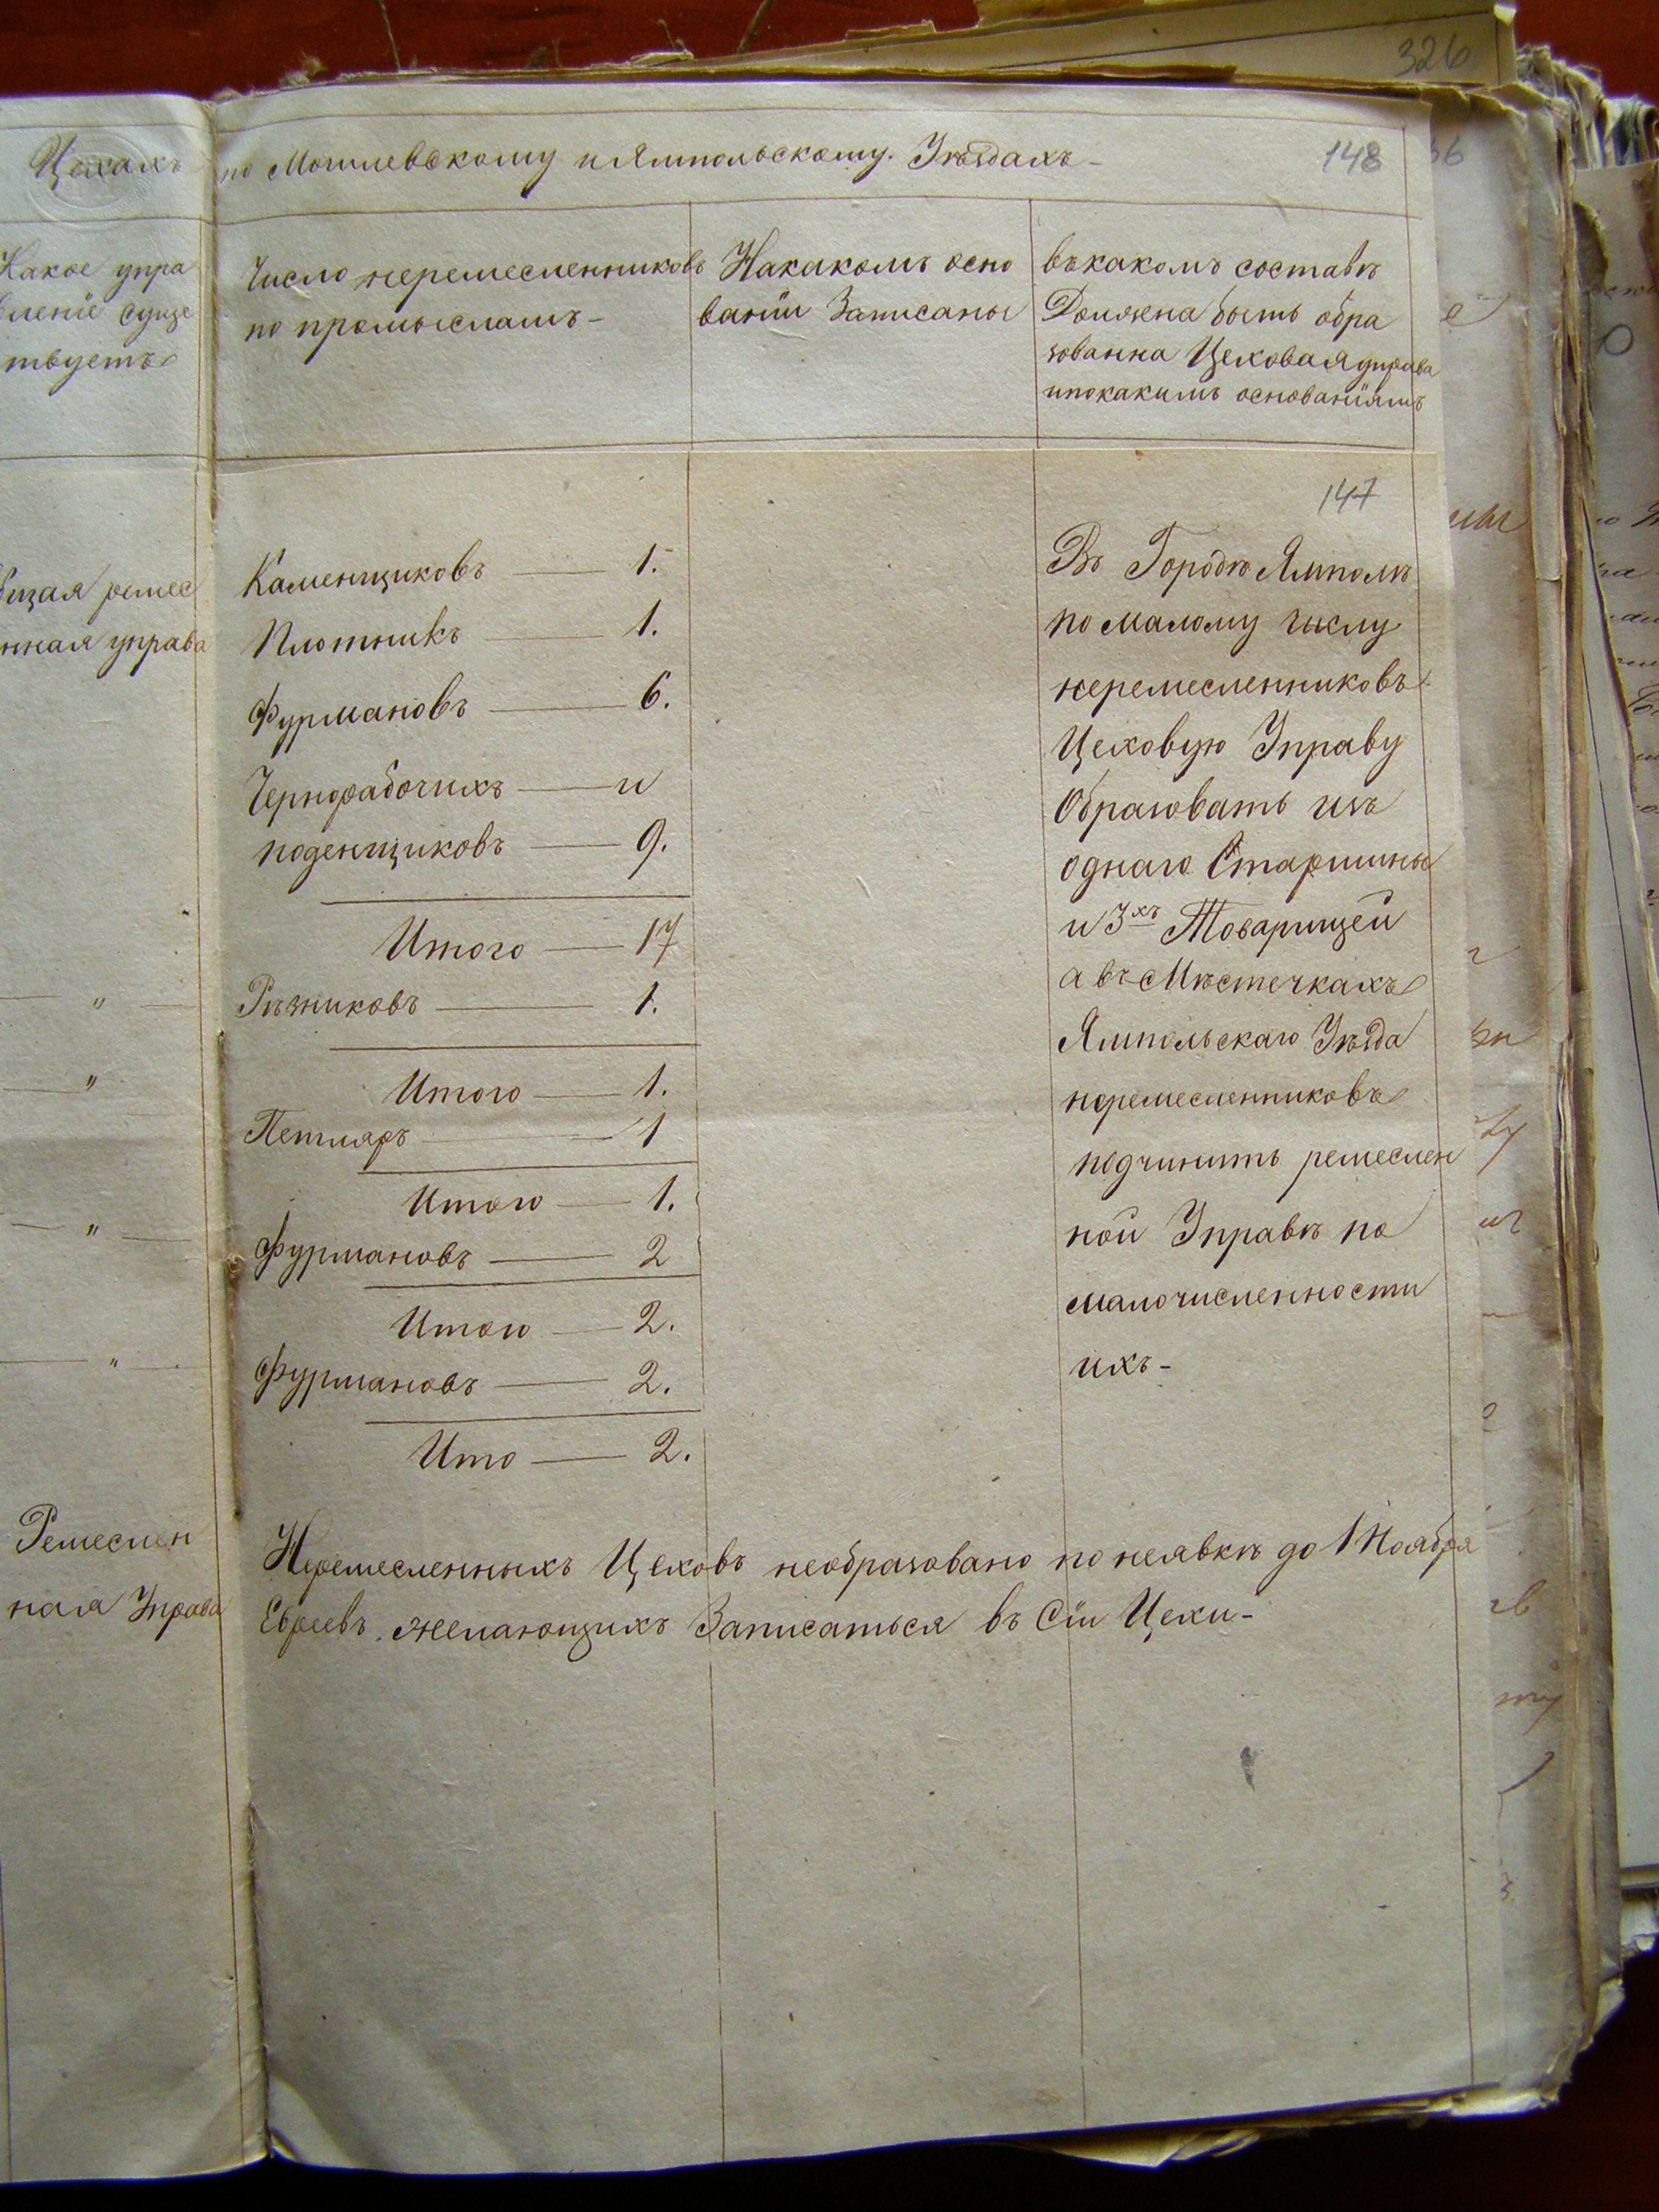 326
Цехахъ по Могилевскому и Ямпольскому Уѣздахъ -
148
Какое упра
вленіе суще
твуетъ
Число неремесленниковъ
по промысламъ -
На какомъ осно
ваніи Записаны
въ какомъ составѣ
Должена быть обра
зованна Цеховая управа
и по какимъ основаніямъ
147
бщая ремес
нная управа
Каменщиковъ — 1.
Плотникъ — 1.
Фурмановъ — 6.
Чернорабочихъ — и
поденщиковъ — 9.
Итого — 17
" Рѣзниковъ — 1.
Итого — 1.
" Петляръ — 1
Итого — 1.
" Фурмановъ — 2
Итого — 2.
" Фурмановъ — 2.
Ито — 2.
Въ Городѣ Ямполѣ
по малому числу
неремесленниковъ
Цеховую Управу
Образовать изъ
однаго Старшины
и 3хъ Товарищей
а въ Мѣстечкахъ
Ямпольскаго Уѣзда
неремесленниковъ
подчинить ремеслен
ной Управѣ по
малочисленности
ихъ -
Ремеслен
ная Управа
Неремесленныхъ Цеховъ необразовано по неявкѣ до 1 Ноября
Евреевъ желающихъ Записаться въ Сіи Цехи -